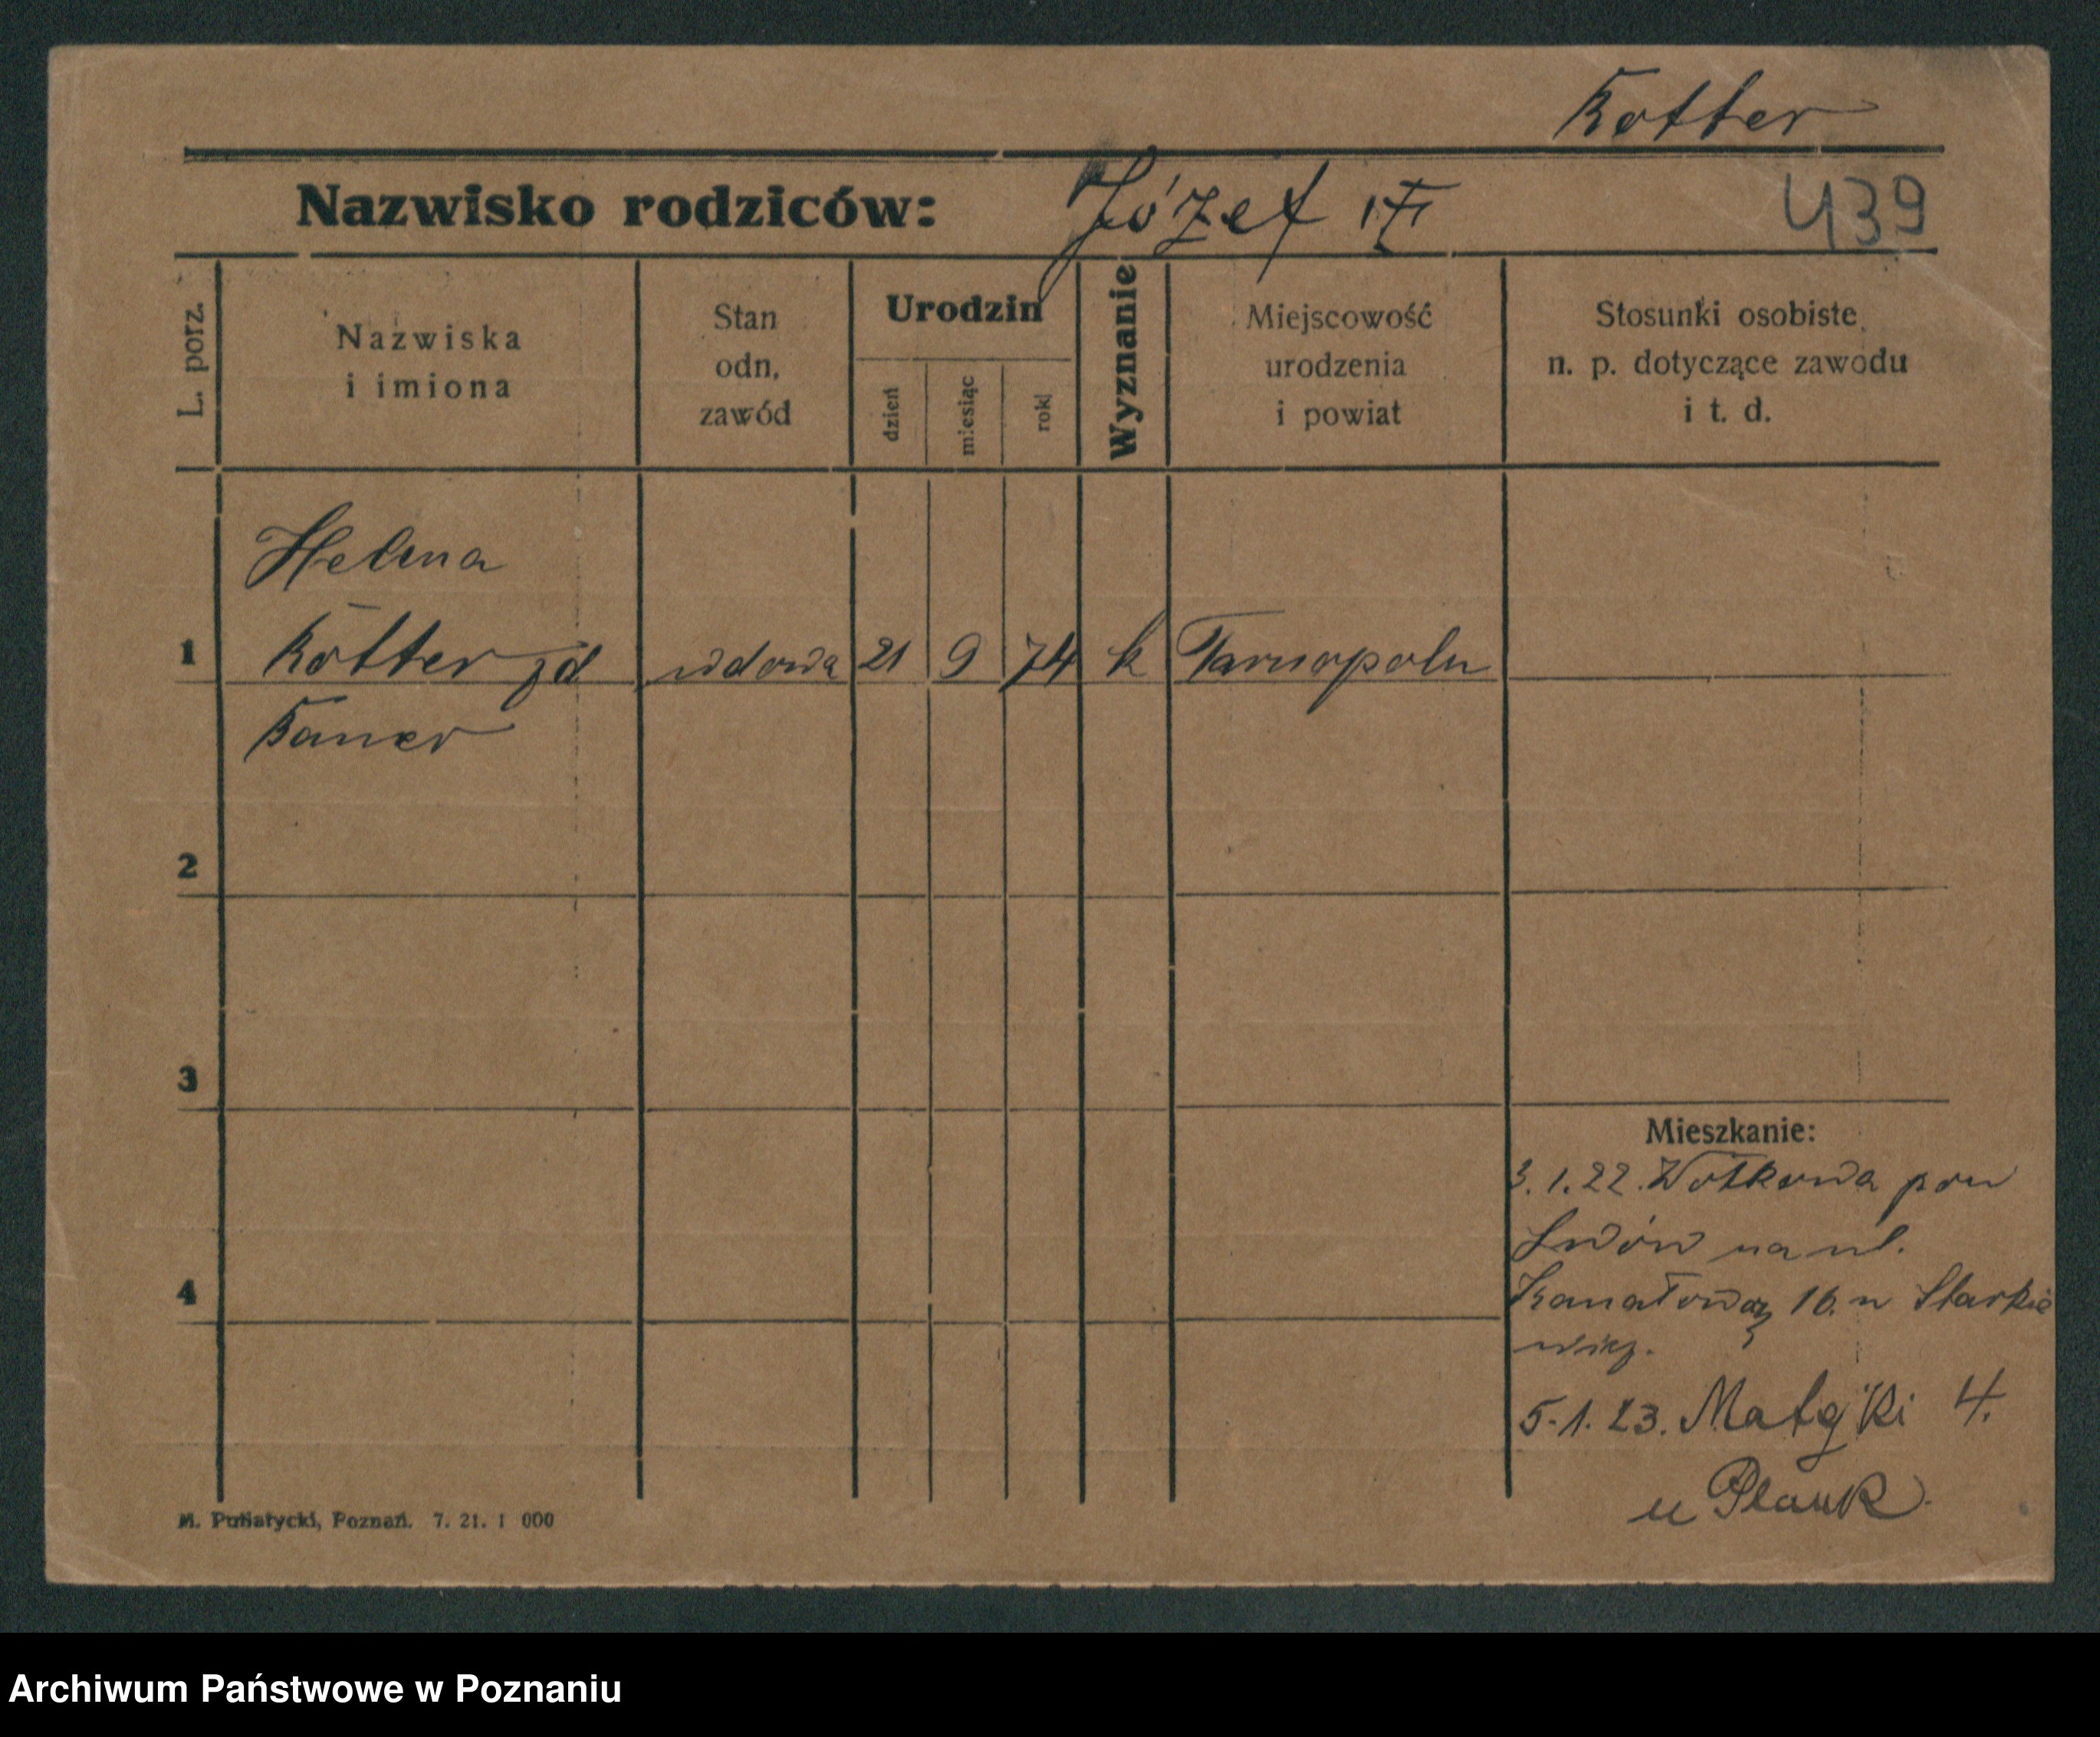 Kotter
Nazwisko rodziców: Józef
439
L. porz.
Nazwiska
i imiona
Stan
odn.
zawód
Urodzin
dzień
miesiąc
rok
Wyznanie
Miejscowość
urodzenia
i powiat
Stosunki osobiste
n. p. dotyczące zawodu
i t. d.
Helena
1 Kotter zd wdowa 21 9 74 k Tarnopolu
2
3
4
Mieszkanie:
3.1.22. pow
Lwów na ul.
Kanałową 16. u Starkie
wicz.
5.1.23. Matejki 4.
u Plauk
M. Putiatycki, Poznań. 7. 21. 1 000
Archiwum Państwowe w Poznaniu